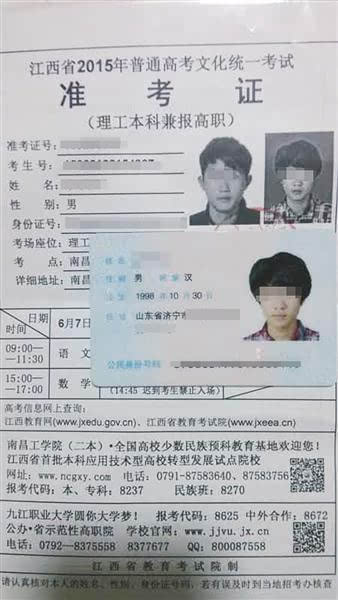 江西省2015年普通高考文化统一考试
准 考 证
(理工本科兼报高职)
准考证号:
考 生 号:
姓 名:
性 别: 男
身份证号:
考场座位: 理工
考 点: 南昌
详细地址: 南昌
男 汉
1998 年 10 月 30 日
山东省济宁市
公民身份号码
日期
时间
6月7
09:00—
—11:30
语 文
15:00—
—17:00
数 学
(14:45 迟到考生禁止入场)
高考信息网上查询:
江西教育网(www.jxedu.gov.cn)、江西省教育考试院(www.jxeea.cn)
南昌工学院(二本)·全国高校少数民族预科教育基地欢迎您!
江西省首批本科应用技术型高校转型发展试点院校
网址: www.ncgxy.com 电话: 0791-87583640、87583756
报考代码: 本、专科: 8237 民族班: 8270
九江职业大学圆你大学梦! 报考代码: 8625 中外合作: 8672
公办·省示范性高职院 学校官网: www.jjvu.jx.cn
电话: 0792—8375558 8377677 QQ: 800087558
江 西 省 教 育 考 试 院 制
请认真核对本人的姓名、性别、身份证号码,若有误及时到当地招考办核查